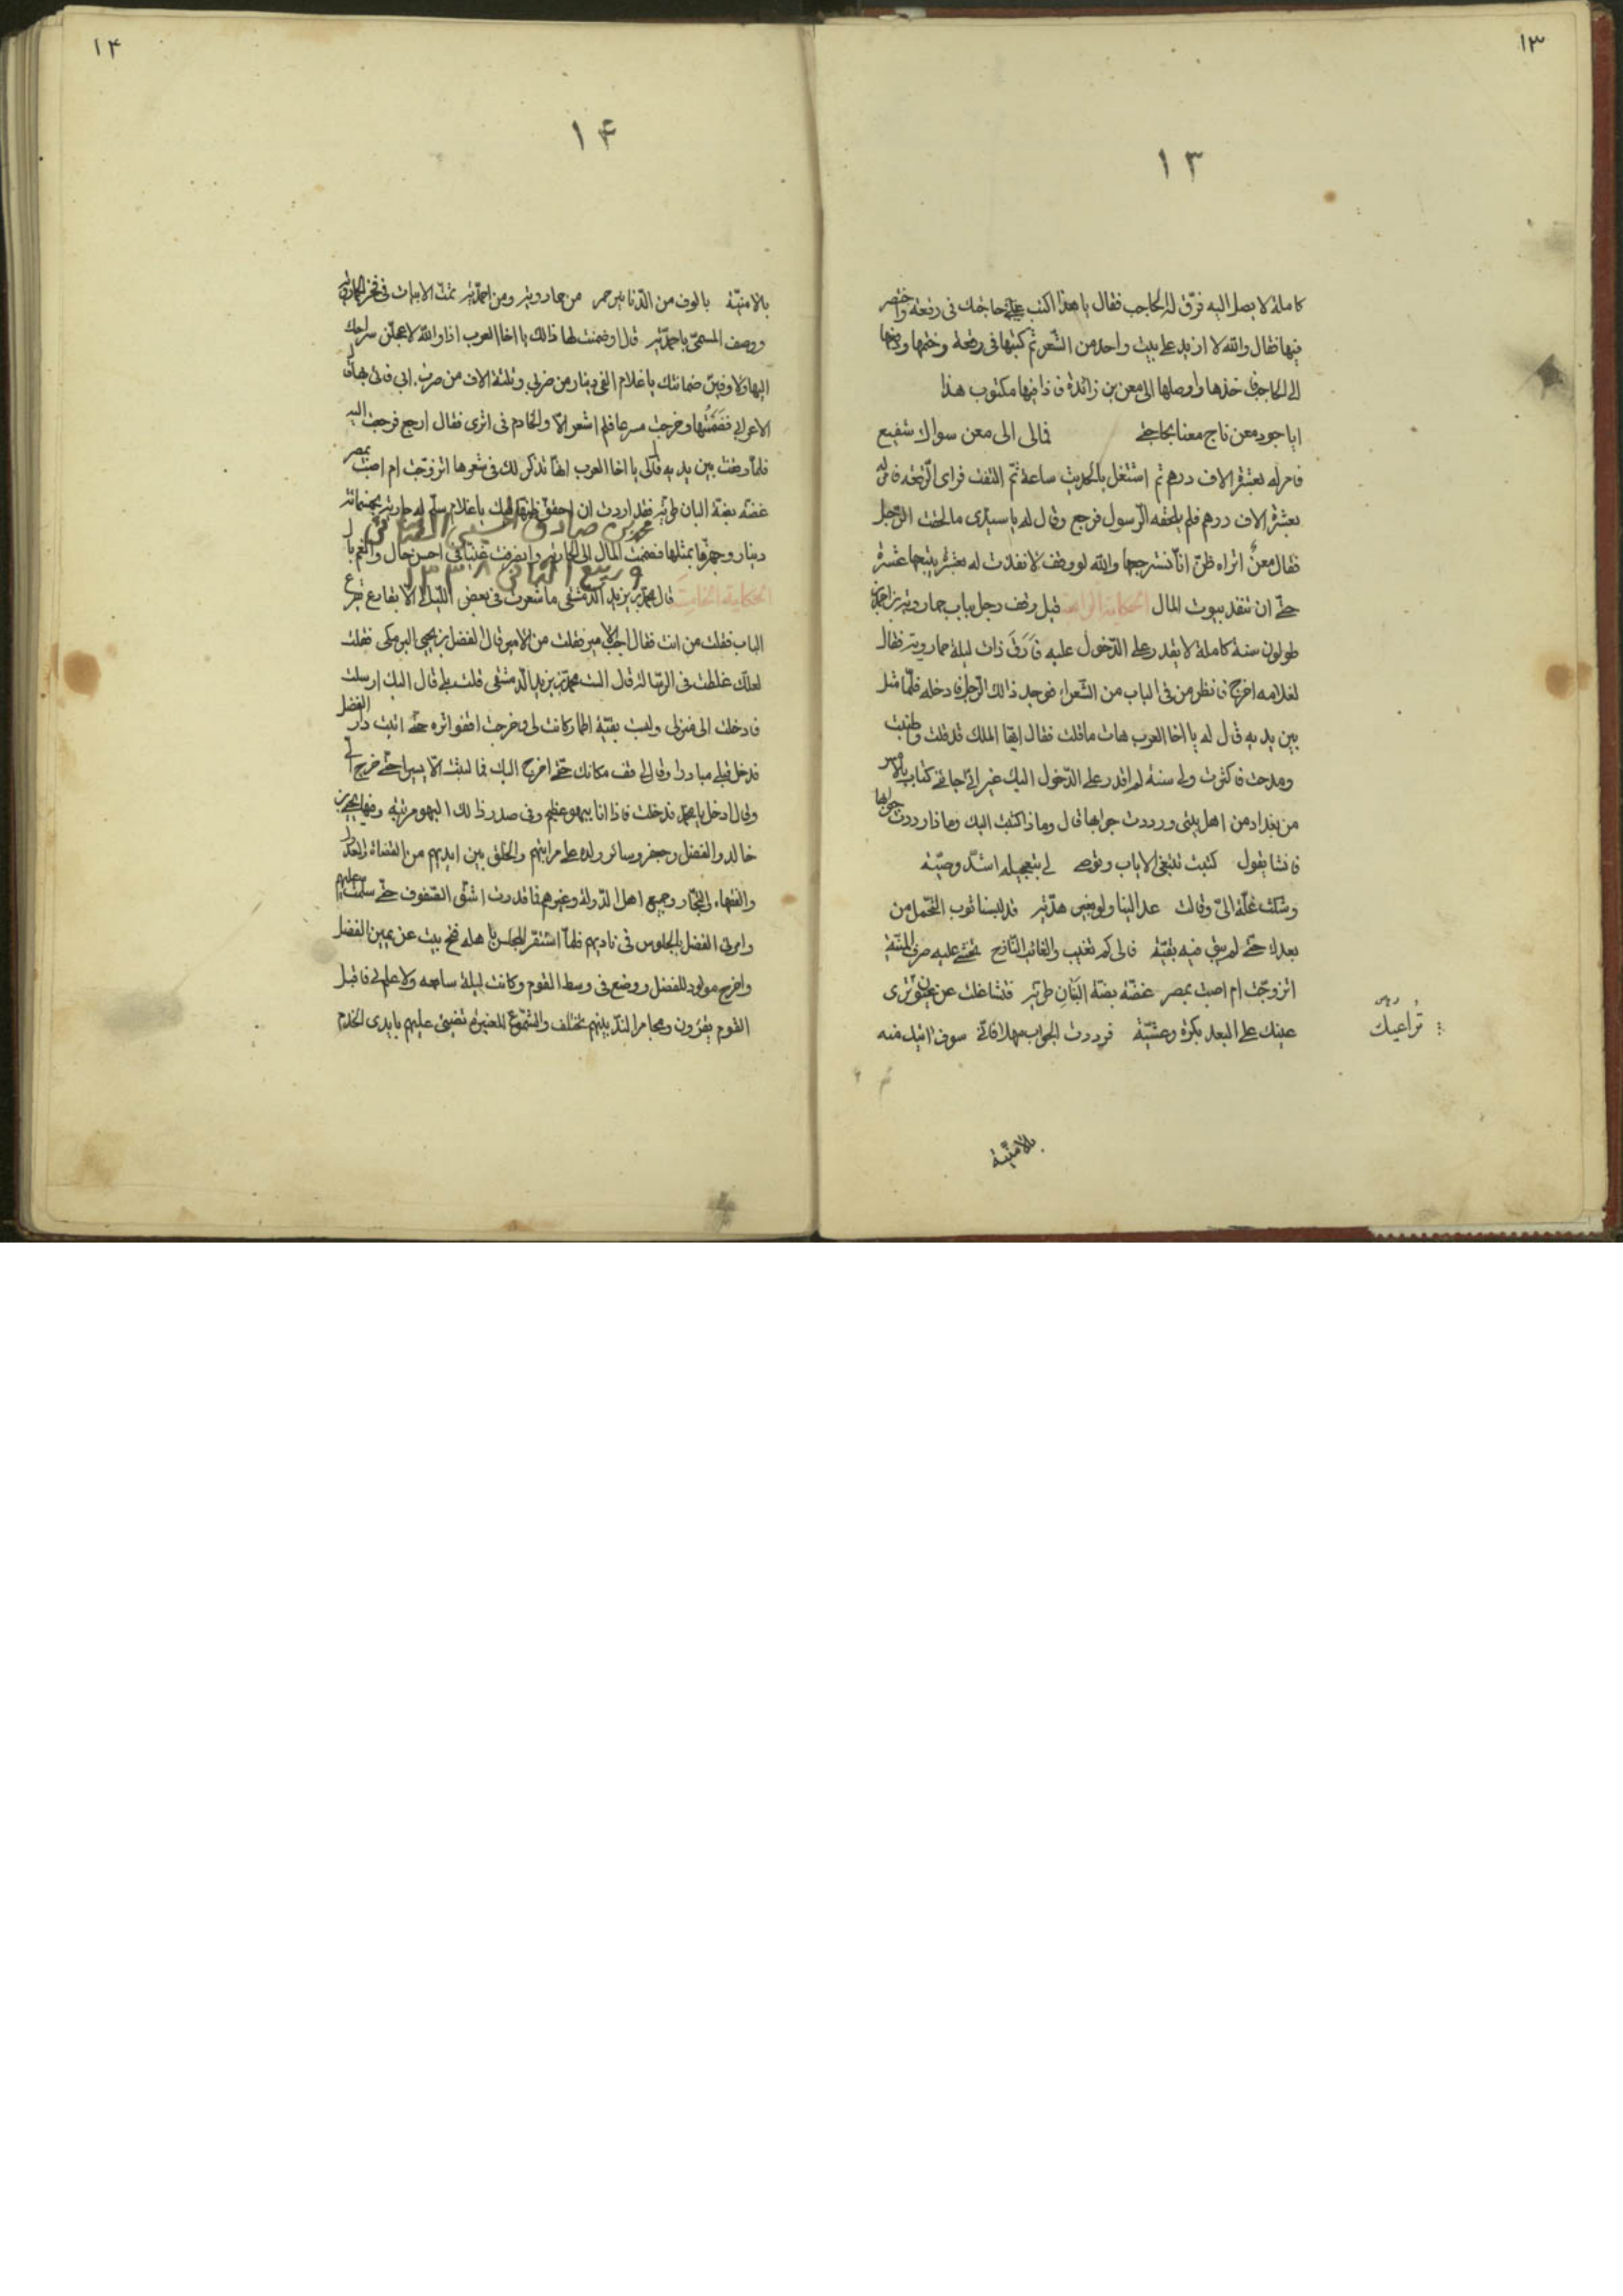 ١٣
١٣
كاملة لا يصل اليه فرق له الحاجب فقال يا هذا اكتب حاجتك فى رقعة واختصر
فيها فقال والله لا ازيد على بيت واحد من الشعر ثم كتبها فى رقعة وختمها ودفعها
الى الحاجب فاخذها واوصلها الى معن بن زائدة فاذا فيها مكتوب هذا
ايا جود معن ناج معنا بحاجتى فمالى الى معن سواك شفيع
فامر له بعشرة الاف درهم ثم اشتغل بالحديث ساعة ثم التفت فراى الرقعة فامر له
بعشرة الاف درهم فلم يلحقه الرسول فرجع وقال له يا سيدى ما لحقت الرجل
فقال معن اتراه ظن انا نسترجعها والله لو وقف لانفذت له بعشرة يتبعها عشرة
حتى ان تنفد بيوت المال الحكاية الرابعة قيل وقف رجل بباب خمارويه بن احمد بن
طولون سنة كاملة لا يقدر على الدخول عليه فارق ذات ليلة خمارويه فقال
لغلامه اخرج فانظر من فى الباب من الشعراء فوجد ذالك الرجل فادخله فلما مثل
بين يديه قال له يا اخا العرب هات ما قلت فقال ايها الملك قد قلت واطنبت
ومدحت فاكثرت ولى سنة لم اقدر على الدخول اليك غير انى جائنى كتاب بالامس
من بغداد من اهل بيتى ورددت جوابها قال وماذا كتبت اليك وماذا رددت جوابها
فانشا يقول كتبت تبتغى الاياب وتوصى لى بتعجيله اشد وصية
وشكت غلة الى وقالت عد الينا ولو بغير هدية قد لبسنا ثوب التجمل من
بعدك حتى لم يبق فيه بقية فالى كم تغيب والغائب النازح تخشى عليه صرف المنية
اتزوجت ام اصبت بمصر غضة بضة البنان طرية فتشاغلت عن ترى
عينك على البعد بكرة وعشية فرددت الجواب مهلا فانى سوف اتيك منه
تراعيك
بالامنية
١۴
١۴
بالامنية بالوف من الدنانير حمر من خمارويه ومن احمدية تمت الابيات فى
ووصف المسمى باحمدية قال اوضمنت لها ذالك يا اخا العرب اذا والله لاعجلن سراحك
اليها ولاوفين ضمانتك يا غلام الفى دينار من ضربى وثلثة الاف من ضرب ابى فاتى بها قال
الاعرابى فضممتها وخرجت مسرعا فلم اشعر الا والخادم فى اثرى فقال ارجع فرجعت اليه
فلما وقفت بين يديه قال لى يا اخا العرب انها تذكر لك فى شعرها اتزوجت ام اصبت بمصر
غضة بضة البنان طرية فقد اردت ان احقق ظنها فيك يا غلام سلم له جارية بخمسمائة
محمد بن صادق الحسينى
دينار وجهزها بمثلها فضممت المال الى الجارية وانصرفت غنيا فى احسن حال وانعم بال
و ربيع الثانى ١٣٣٨
الحكاية الخامسة قال محمد بن يزيد الدمشقى ما شعرت فى بعض الليالى الا بقارع قرع
الباب فقلت من انت فقال اجب الامير فقلت من الامير قال الفضل بن يحيى البرمكى فقلت
لعلك غلطت فى الرسالة قال الست محمد بن يزيد الدمشقى قلت بلى قال اليك ارسلت
فادخلت الى منزلى ولبست بقية اطمار كانت لى وخرجت اقفو اثره حتى اتيت دار الفضل
فدخل قبلى مبادرا وقال لى قف مكانك حتى اخرج اليك فما لبثت الا يسيرا حتى خرج الى
وقال ادخل يا محمد فدخلت فاذا انا ببهو عظيم وفى صدر ذالك البهو مرتبة وفيها يحيى بن
خالد والفضل وجعفر وسائر ولده على مراتبهم والخلق بين ايديهم من القضاة والعدول
والفقهاء والتجار وجميع اهل الدولة وغيرهم فما قدرت اشق الصفوف حتى سلمت عليهم
وامرنى الفضل بالجلوس فى ناديهم فلما استقر المجلس باهله فتح بيت عن يمين الفضل
واخرج مولود للفضل ووضع فى وسط القوم وكانت ليلة سابعه ولا علم لى فاقبل
القوم يقرؤن ومجامر الند بينهم تختلف والشموع المعنبرة تضيئ عليهم بايدى الخدم